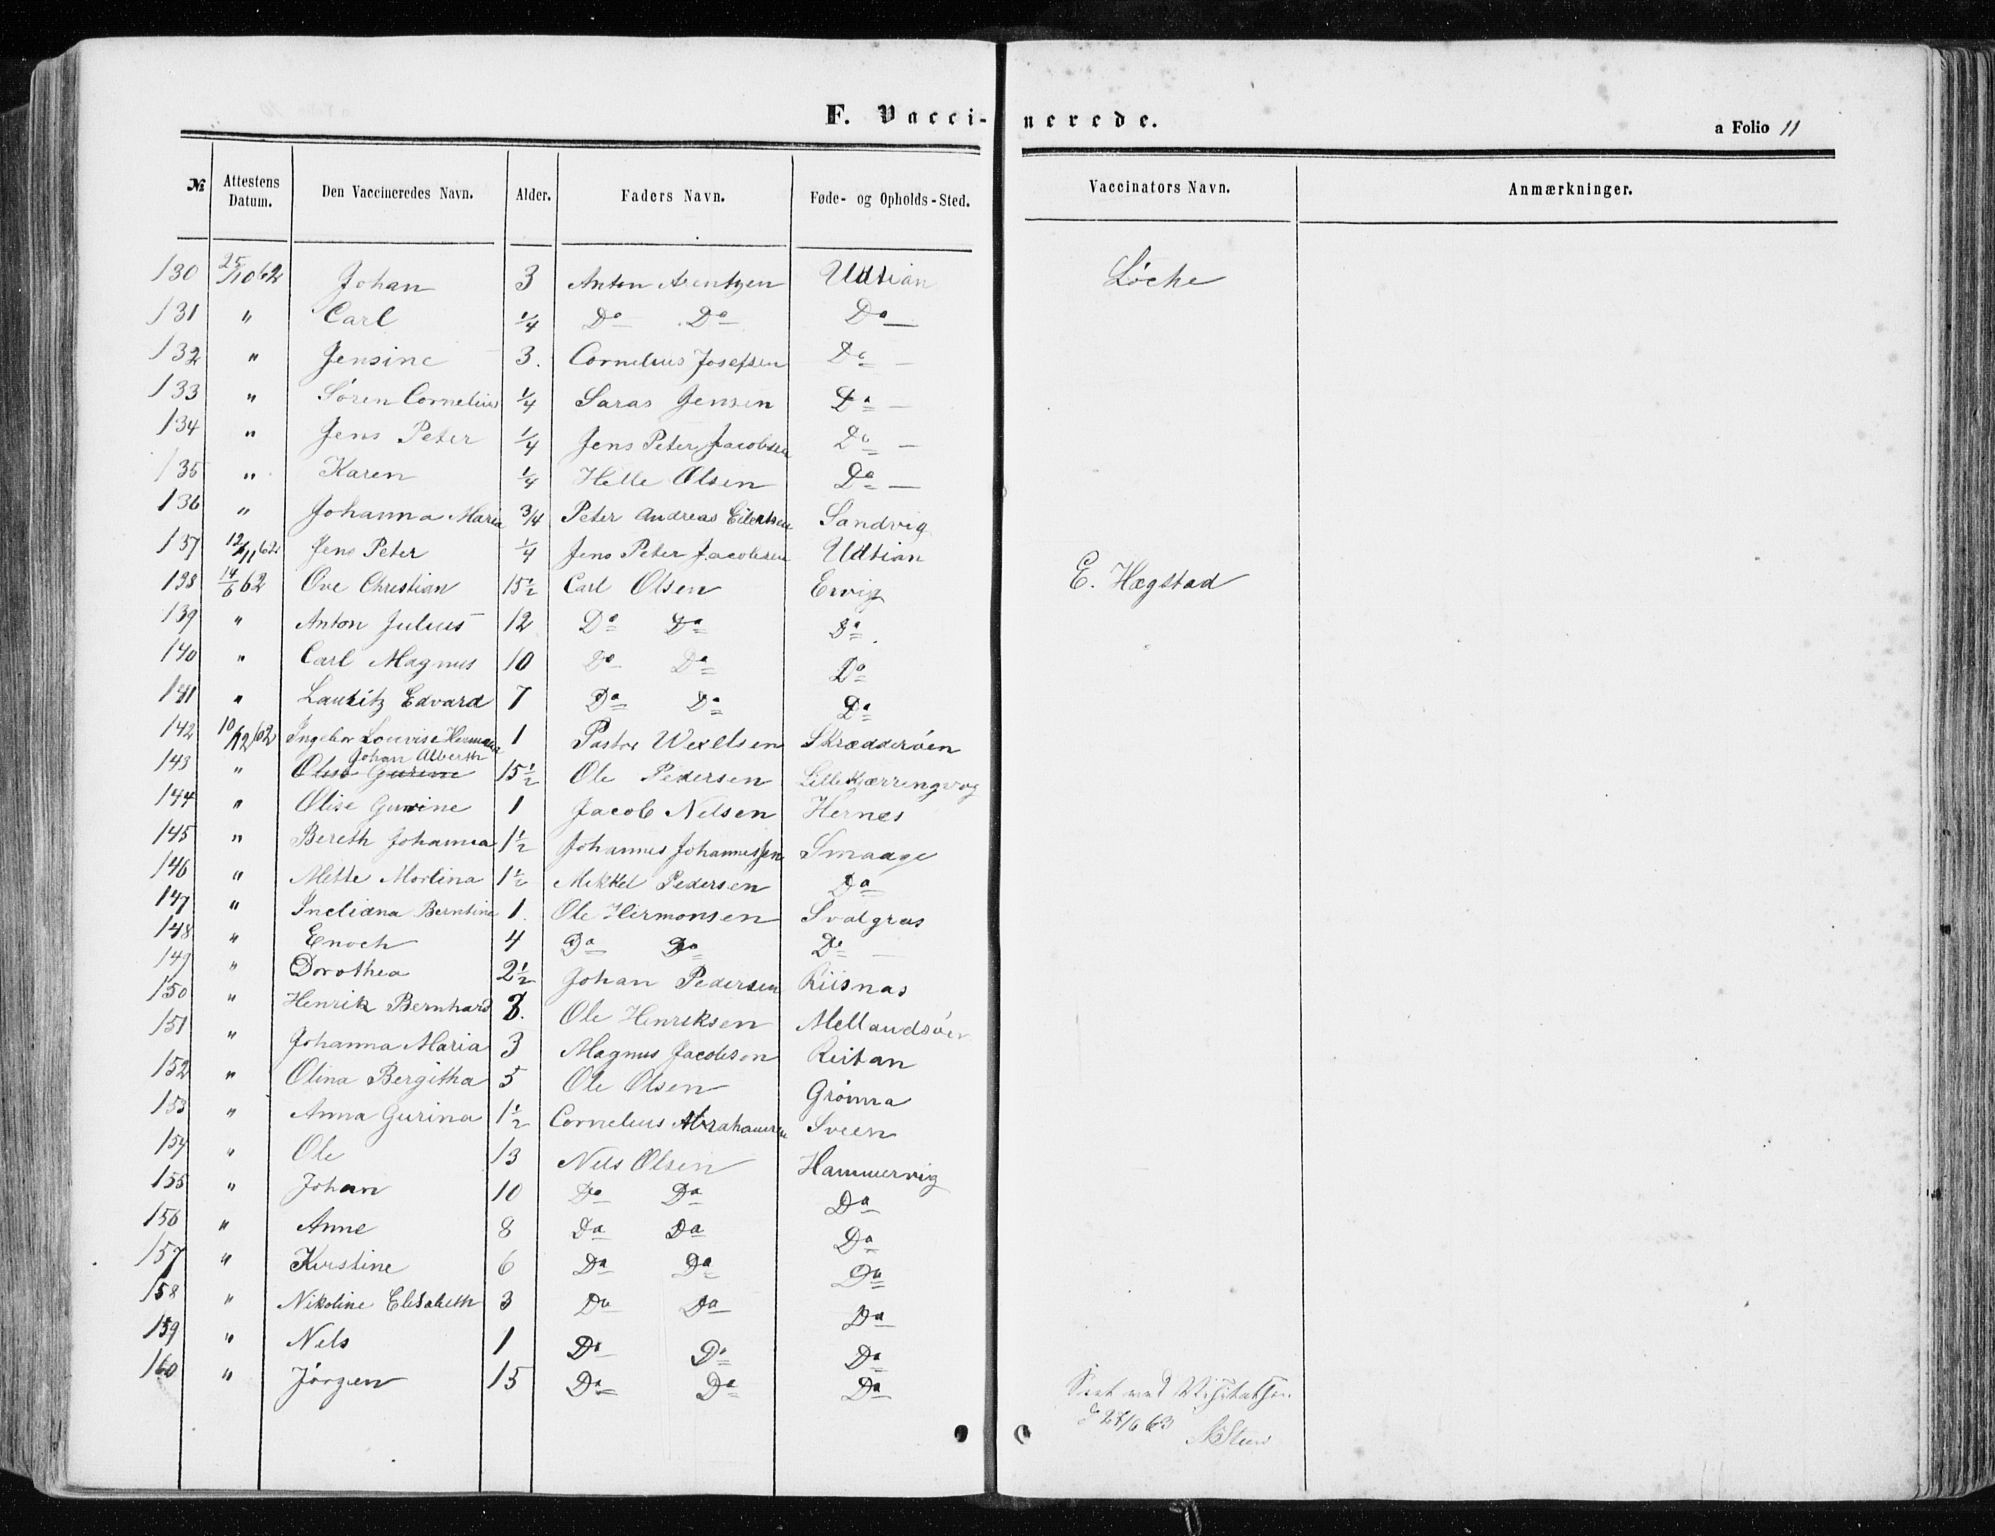 F. Vacci-nerede.
a Folio 11
№ Attestens Datum. Den Vaccineredes Navn. Alder. Faders Navn. Føde- og Opholds-Sted. Vaccinators Navn. Anmærkninger.
130 25/10 62 Johan 3 Anton Arentzen Udtian Løche
131 " Carl 1/4 Do Do Do
132 " Jensine 3. Cornelius Josefsen Do
133 " Søren Cornelius 1/4 Saras Jensen Do
134 " Jens Peter 1/4 Jens Peter Jacobsen Do
135 " Karen 1/4 Helle Olsen Do
136 " Johanna Maria 3/4 Peter Andreas Eilertsen Sandvig
137 12/11 62 Jens Peter 1/4 Jens Peter Jacobsen Udtian
138 14/6 62 Ove Christian 15 1/2 Carl Olsen Ervig E. Hægstad
139 " Anton Julius 12 Do Do Do
140 " Carl Magnus 10 Do Do Do
141 " Lauritz Edvard 7 Do Do Do
142 10/12 62 Ingebor Louvise Hermana 1 Pastor Wexelsen Skrædderöen
Johan Alberth
143 " Olise Gurine 15 1/2 Ole Pedersen Lillekjærringvog
144 " Olise Gurine 1 Jacob Nelsen Hernes
145 " Bereth Johanna 1 1/2 Johannes Johannessen Smaage
146 " Mette Martina 1 1/2 Mikkel Pedersen Do
147 " Ineliana Berntine 1. Ole Hermonsen Svalgras
148 " Enoch 4 Do Do Do
149 " Dorothea 2 1/2 Johan Pedersen Riisnas
150 " Henrik Bernhard 8. Ole Henriksen Mellandsöen
151 " Johanna Maria 3 Magnus Jacobson Reitan
152 " Olina Bergitha 5 Ole Olsen Grönna
153 " Anna Gurina 1 1/2 Cornelius Abrahamsen Sveen
154 " Ole 13 Nels Olsen Hammervig
155 " Johan 10 Do Do Do
156 " Anne 8 Do Do Do
157 " Kirstine 6 Do Do Do
158 " Nikoline Elisabeth 3 Do Do Do
159 " Nels 1 Do Do Do
160 " Jörgen 15 Do Do Do
Seet ved Visitatsen
d 27/6 63